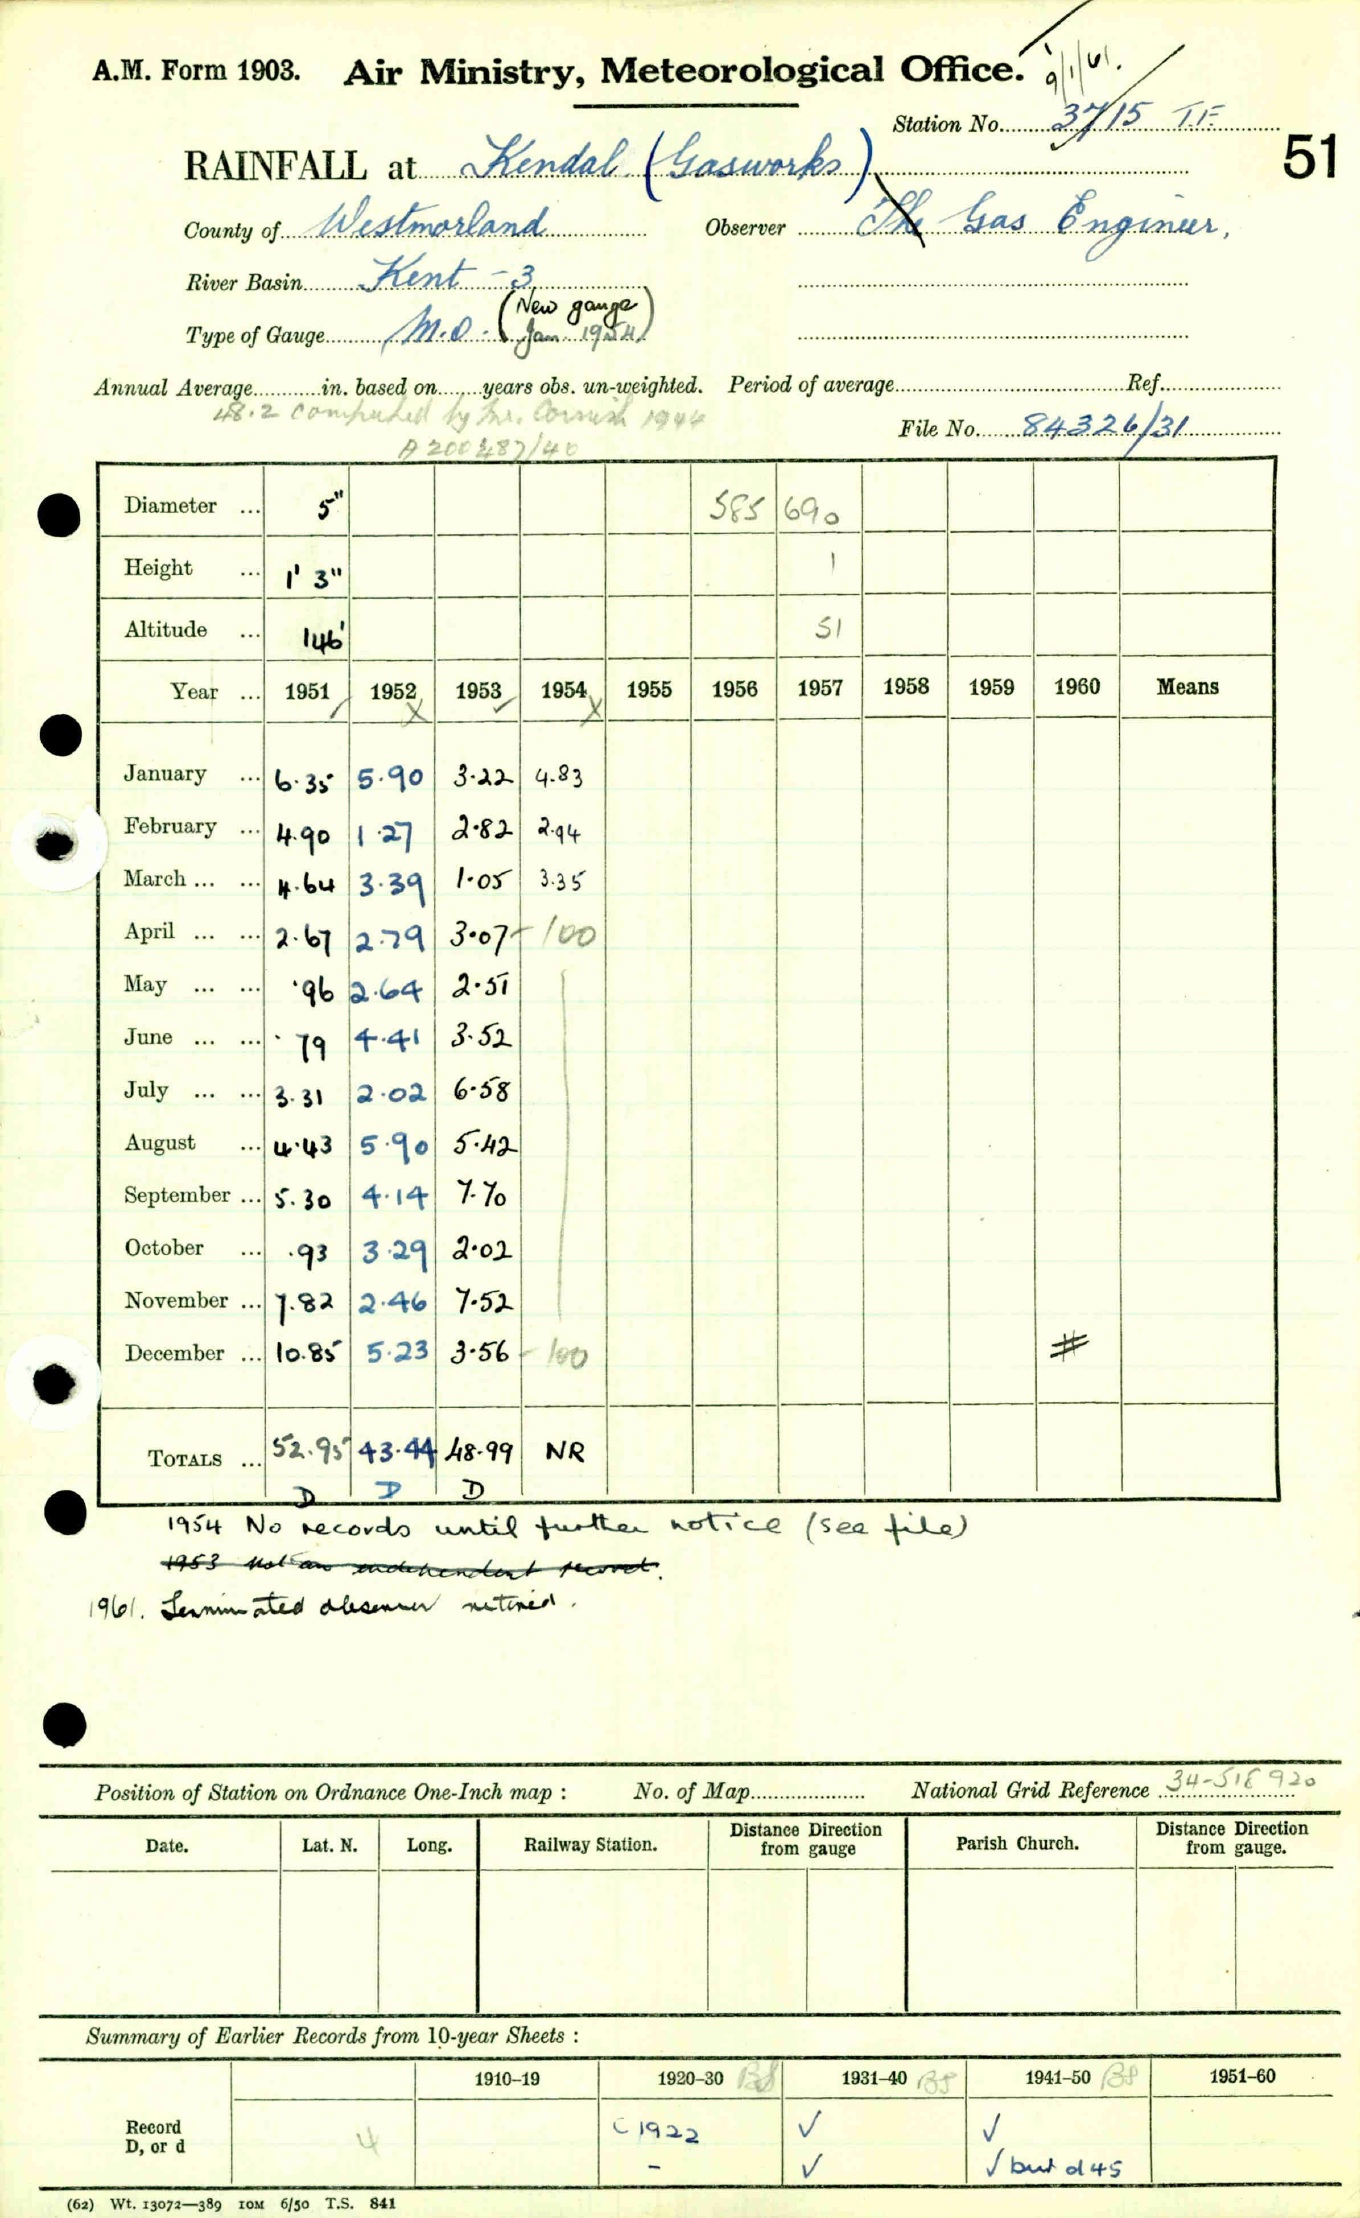 A.M. Form 1903. Air Ministry, Meteorological Office. 9/1/61.
Station No. 3715 T.F.
51
RAINFALL at Kendal (Gasworks)
County of Westmorland Observer The Gas Engineer,
River Basin Kent - 3
Type of Gauge M.O. (New gauge Jan. 1954)
Annual Average............in. based on.......years obs. un-weighted. Period of average.............Ref.............
48.2 computed by Mr. Cornish 1944
File No. 84326/31
Diameter ... 5" 585 690
Height ... 1' 3" 1
Altitude ... 146' 51
Year ... 1951 1952 X 1953 ✓ 1954 X 1955 1956 1957 1958 1959 1960 Means
January ... 6.35 5.90 3.22 4.83
February ... 4.90 1.27 2.82 2.94
March ... ... 4.64 3.39 1.05 3.35
April ... ... 2.67 2.79 3.07 - 100
May ... ... .96 2.64 2.51
June ... ... .79 4.41 3.52
July ... ... 3.31 2.02 6.58
August ... 4.43 5.90 5.42
September ... 5.30 4.14 7.70
October ... .93 3.29 2.02
November ... 7.82 2.46 7.52
December ... 10.85 5.23 3.56 - 100 #
TOTALS ... 52.95 43.44 48.99 NR
D D D
1954 No records until further notice (see file)
1953 not an independent record.
1961. Terminated observer retired.
Position of Station on Ordnance One-Inch map : No. of Map.................... National Grid Reference 34-518920
Date. Lat. N. Long. Railway Station. Distance from gauge Direction Parish Church. Distance from gauge. Direction
Summary of Earlier Records from 10-year Sheets :
1910–19 1920–30 BS 1931–40 BS 1941–50 BS 1951–60
Record 4 C 1922 ✓ ✓
D, or d - ✓ ✓ but d45
(62) Wt. 13072—389 10M 6/50 T.S. 841